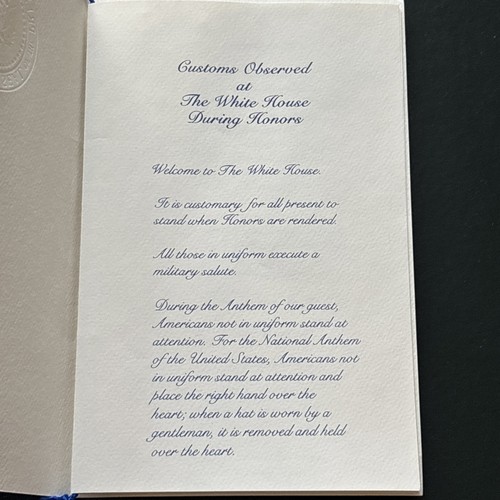 Customs Observed
at
The White House
During Honors
Welcome to The White House.
It is customary for all present to
stand when Honors are rendered.
All those in uniform execute a
military salute.
During the Anthem of our guest,
Americans not in uniform stand at
attention. For the National Anthem
of the United States, Americans not
in uniform stand at attention and
place the right hand over the
heart; when a hat is worn by a
gentleman, it is removed and held
over the heart.